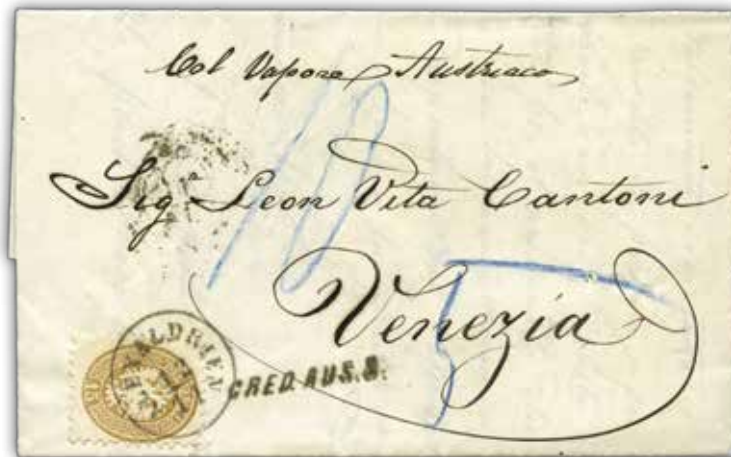 Col Vapore Austriaco
10
Sig Leon Vita Cantoni
Venezia
5
ALEXANDRIEN
CRED. AUS. S.